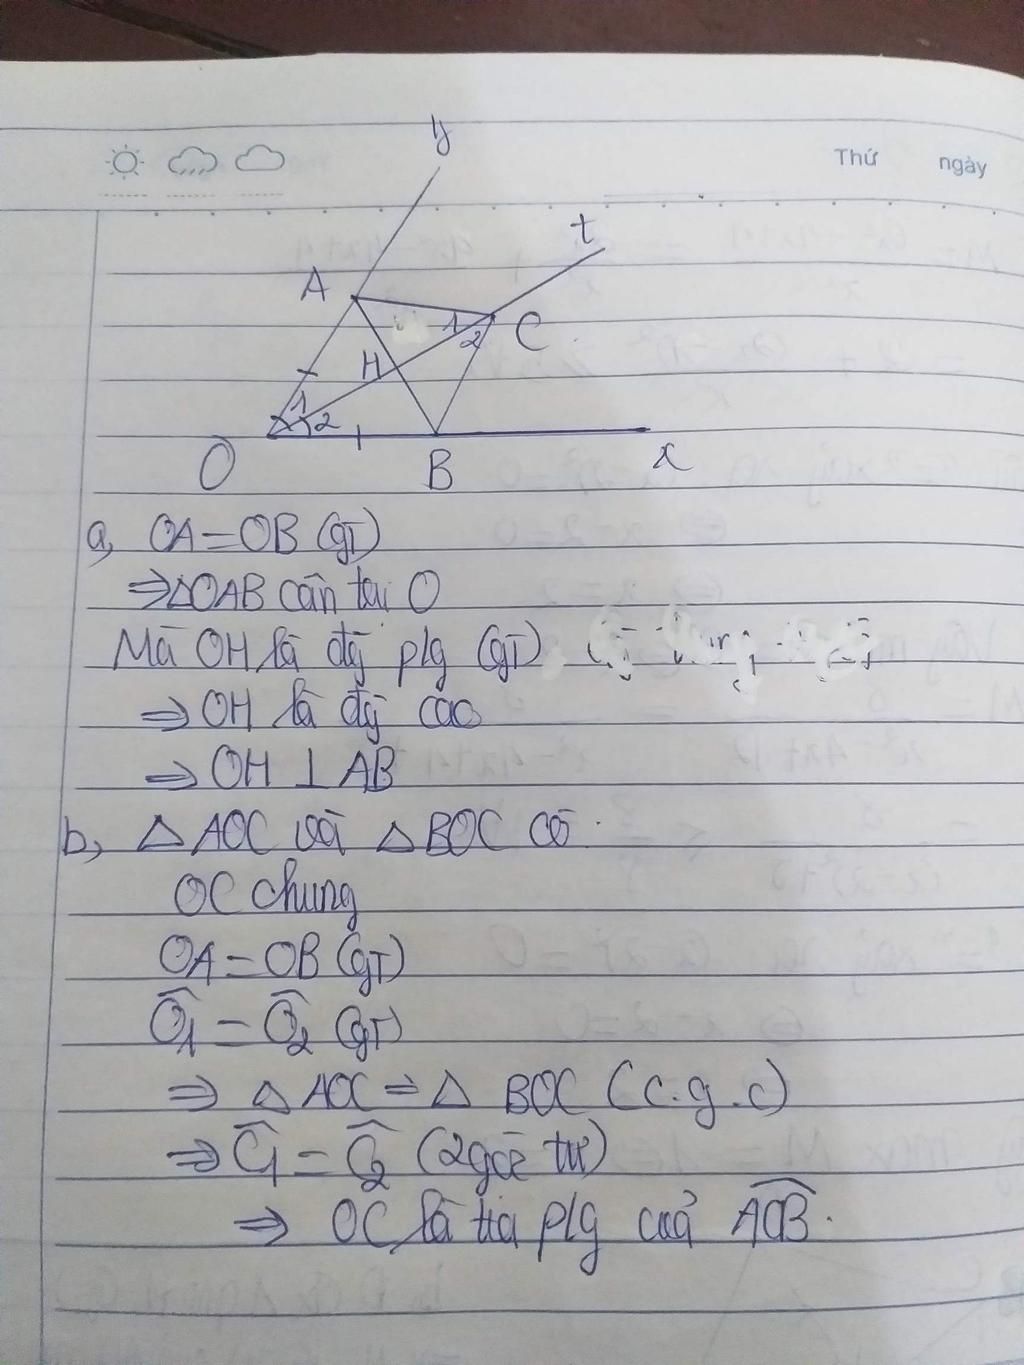 Thứ ngày
y
t
A
1
C
2
H
1
2
O
B
x
a, OA = OB (gT)
⇒ △OAB cân tại O
Mà OH là đg plg (gT)
⇒ OH là đg cao
⇒ OH ⊥ AB
b, △ AOC và △ BOC có
OC chung
OA = OB (gT)
Ô1 = Ô2 (gT)
⇒ △ AOC = △ BOC (c.g.c)
⇒ Ĉ1 = Ĉ2 (2 góc tư)
⇒ OC là tia plg cuả AOB.